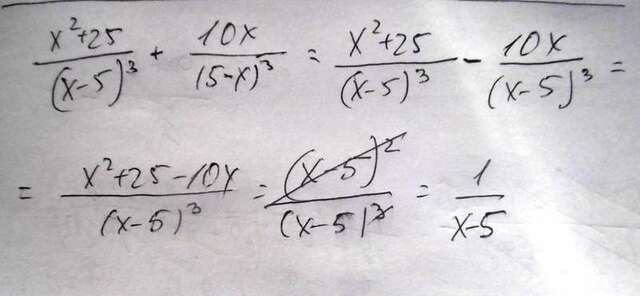 \frac{x^2+25}{(x-5)^3} + \frac{10x}{(5-x)^3} = \frac{x^2+25}{(x-5)^3} - \frac{10x}{(x-5)^3} =
= \frac{x^2+25-10x}{(x-5)^3} = \frac{(x-5)^2}{(x-5)^3} = \frac{1}{x-5}